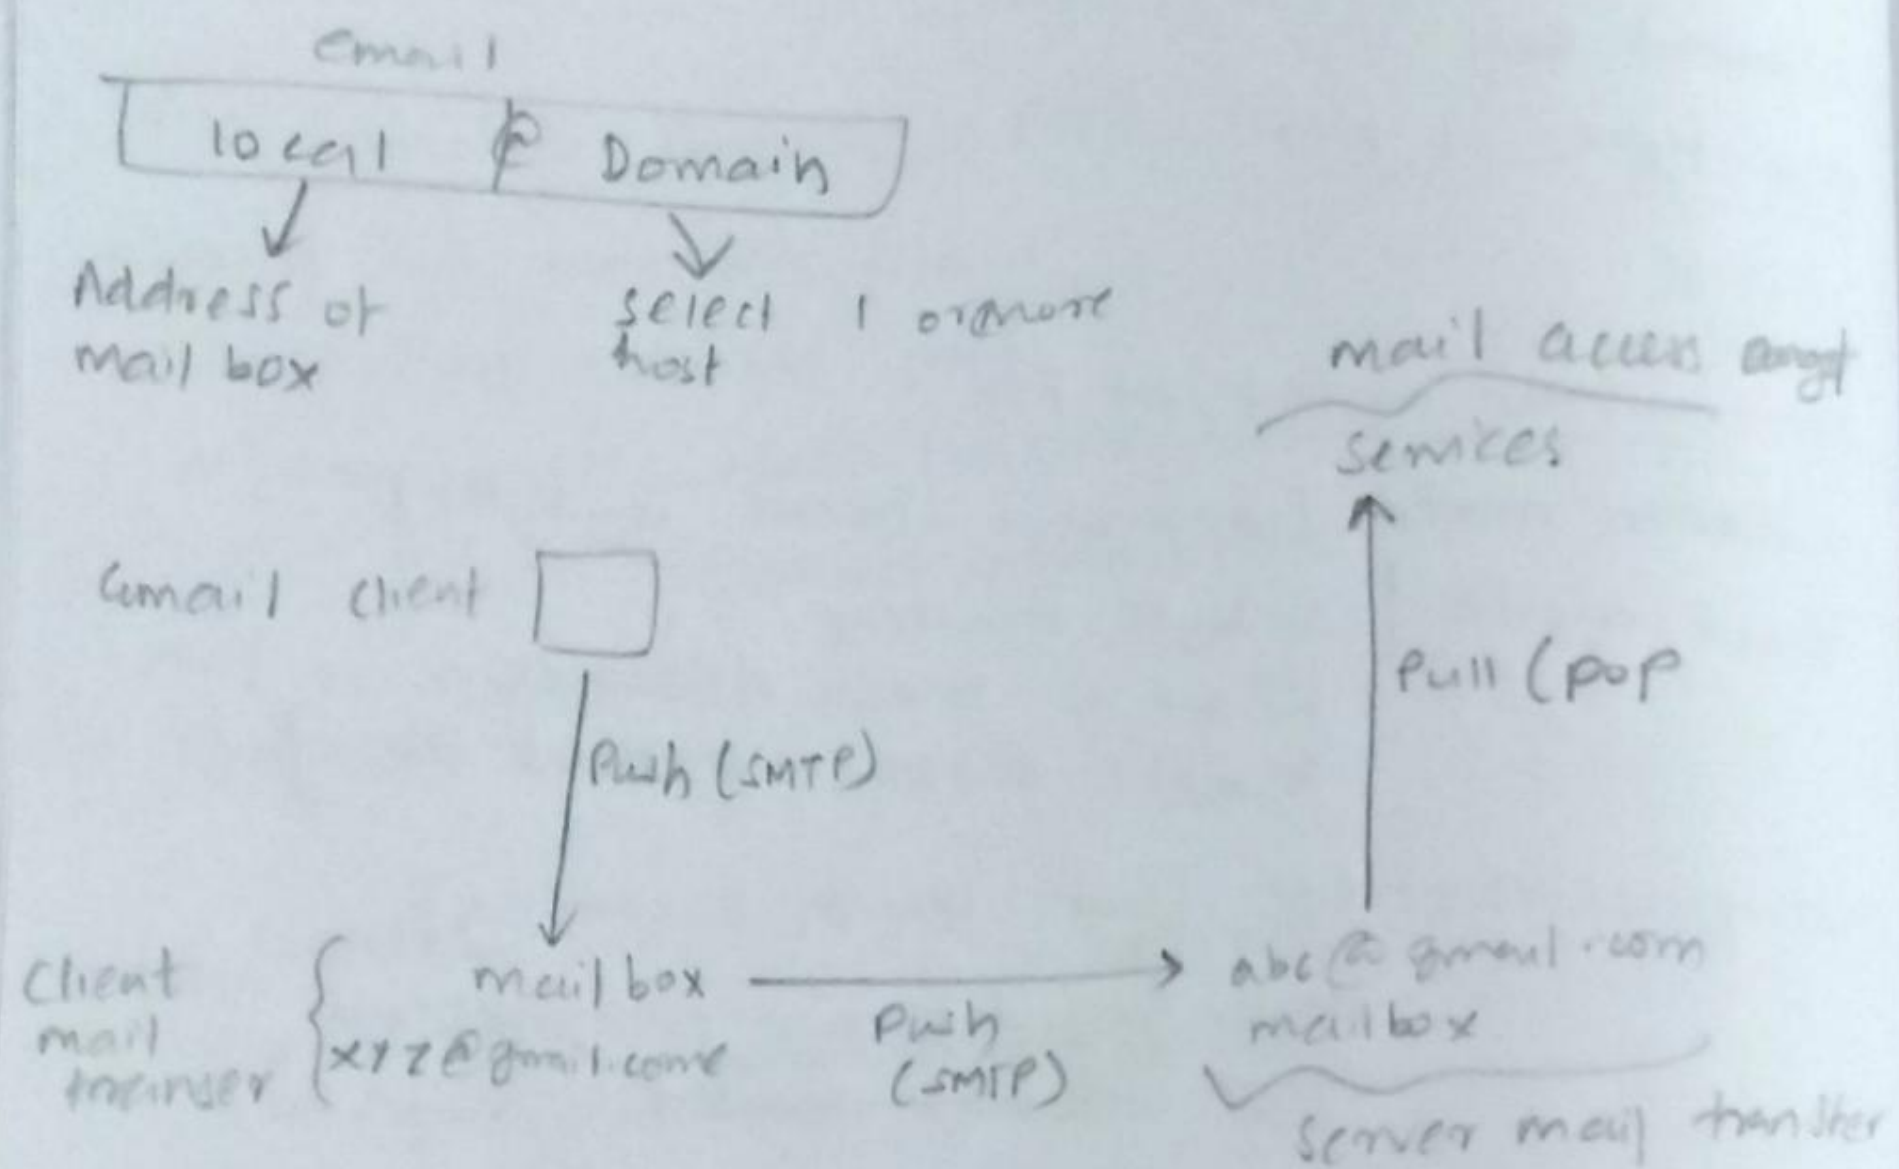 email
local @ Domain
Address of
mail box
select 1 or more
host
mail access
services
Gmail client
Push (SMTP)
Pull (pop
Client
mail
mailbox
xyz@gmail.com
Push
(SMTP)
abc@gmail.com
mailbox
server mail transfer